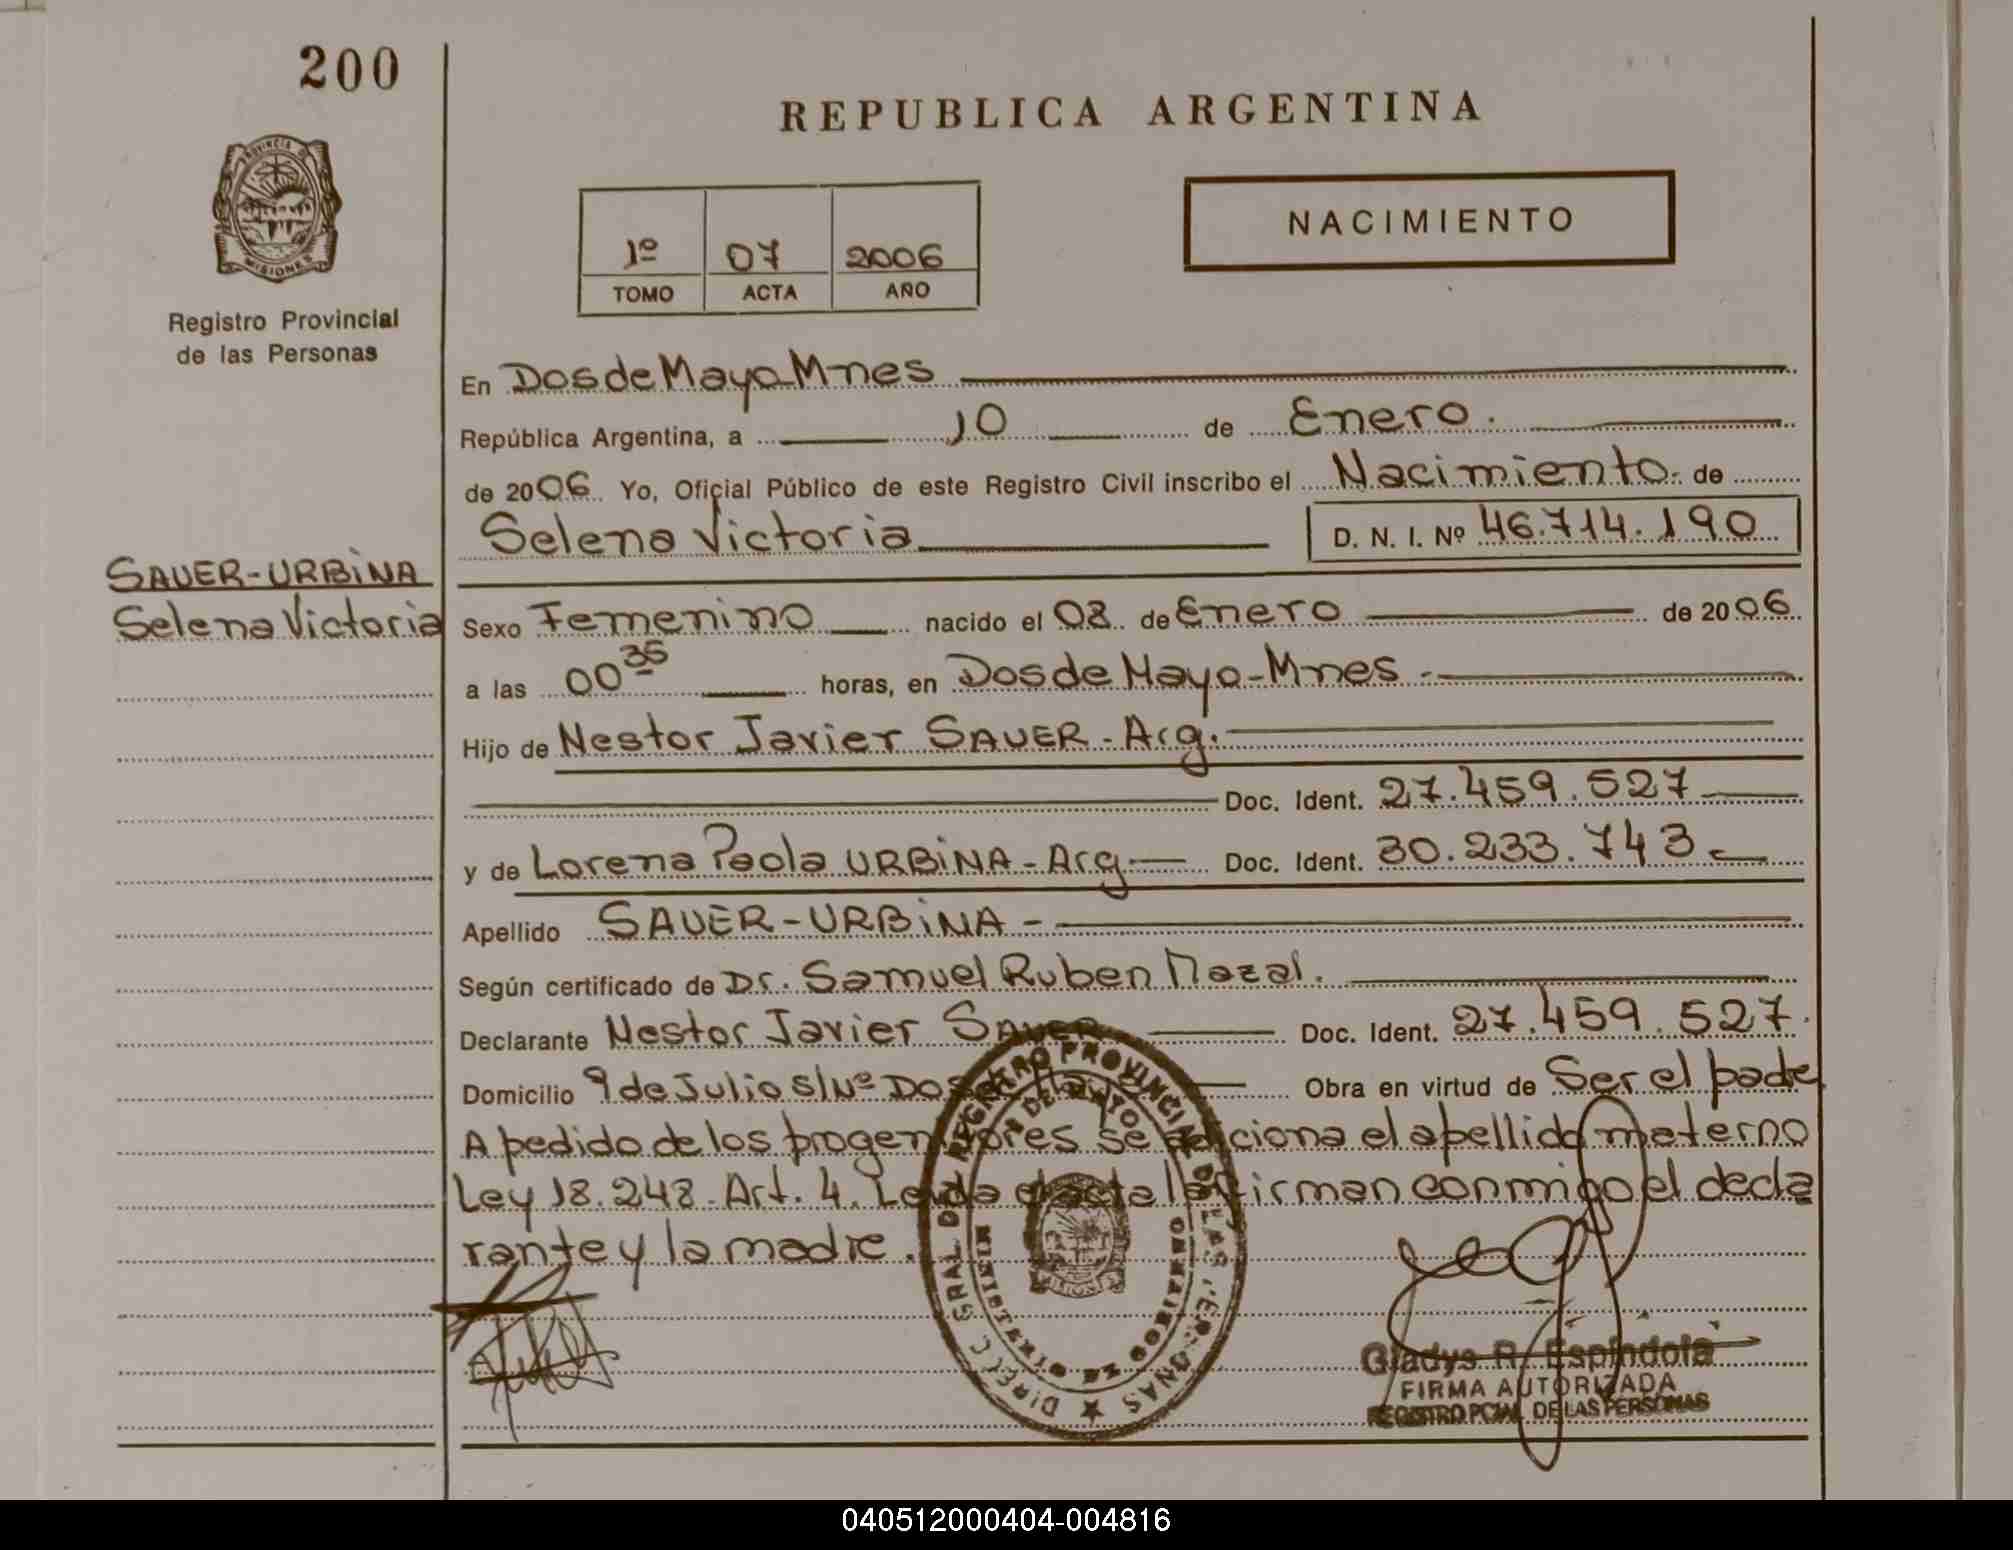 200
REPUBLICA ARGENTINA
NACIMIENTO
PROVINCIA DE
MISIONES
1º 07 2006
TOMO ACTA AÑO
Registro Provincial
de las Personas
En Dos de Mayo Mnes
República Argentina, a 10 de Enero.
de 2006. Yo, Oficial Público de este Registro Civil inscribo el Nacimiento. de
Selena Victoria D. N. I. Nº 46.714.190
SAUER-URBiNA
Selena Victoria
Sexo Femenino nacido el 08 de Enero de 2006.
a las 00 35 horas, en Dos de Mayo-Mnes-
Hijo de Nestor Javier SAUER-Arg.
Doc. Ident. 27.459.527
y de Lorena Paola URBiNA-Arg- Doc. Ident. 30.233.743-
Apellido SAUER-URBiNA-
Según certificado de Dr. Samuel Ruben Mazal.
Declarante Nestor Javier SAUER Doc. Ident. 27.459.527.
Domicilio 9 de Julio s/Nº Dos de Mayo Obra en virtud de Ser el padre
A pedido de los progenitores se adiciona el apellido materno
Ley 18.248-Art. 4. Leida el acta la firman conmigo el decla
rante y la madre.
REGISTRO PROVINCIAL DE LAS PERSONAS ★
2 DE MAYO
MINISTERIO DE GOBIERNO
Gladys R. Espindola
FIRMA AUTORIZADA
REGISTRO PCIAL DE LAS PERSONAS
040512000404-004816